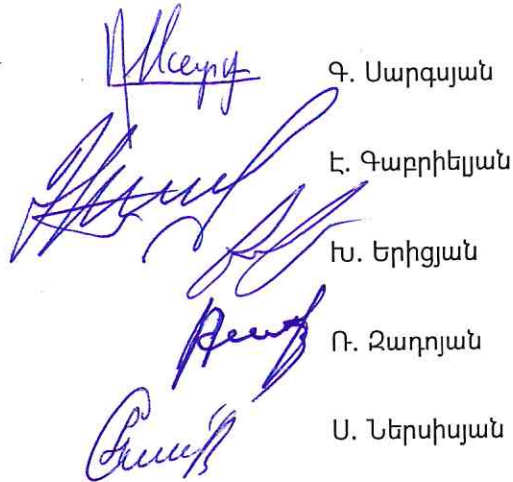 Գ. Սարգսյան
Է. Գաբրիելյան
Խ. Երիցյան
Ռ. Զադոյան
Ս. Ներսիսյան